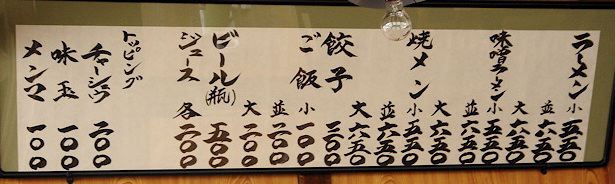 ラーメン 小 五五〇
並 六〇〇
大 六五〇
味噌ラーメン 小 五五〇
並 六〇〇
大 六五〇
焼メン 小 五五〇
並 六〇〇
大 六五〇
餃子 三〇〇
ご飯 小 一〇〇
並 二〇〇
大 二〇〇
ビール(瓶) 五〇〇
ジュース 各 二〇〇
トッピング
チャーシュウ 二〇〇
味玉 一〇〇
メンマ 一〇〇